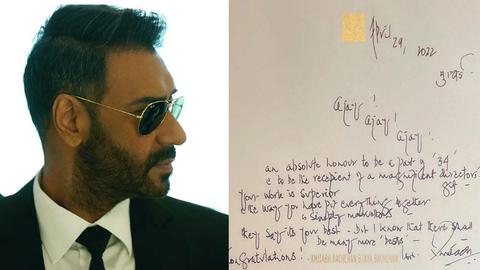 April
29, 2022
मुंबई -
Ajay !
Ajay !
Ajay !
an absolute honour to be a part of '34'
& to be the recipient of a magnificent directors'
gift -
your work is superior
the way you have put everything together
is simply marvellous -
they say its your best - but I know that there shall
be many more 'bests' -
ongratulations
AMITABH BACHCHAN & JAYA BACHCHAN